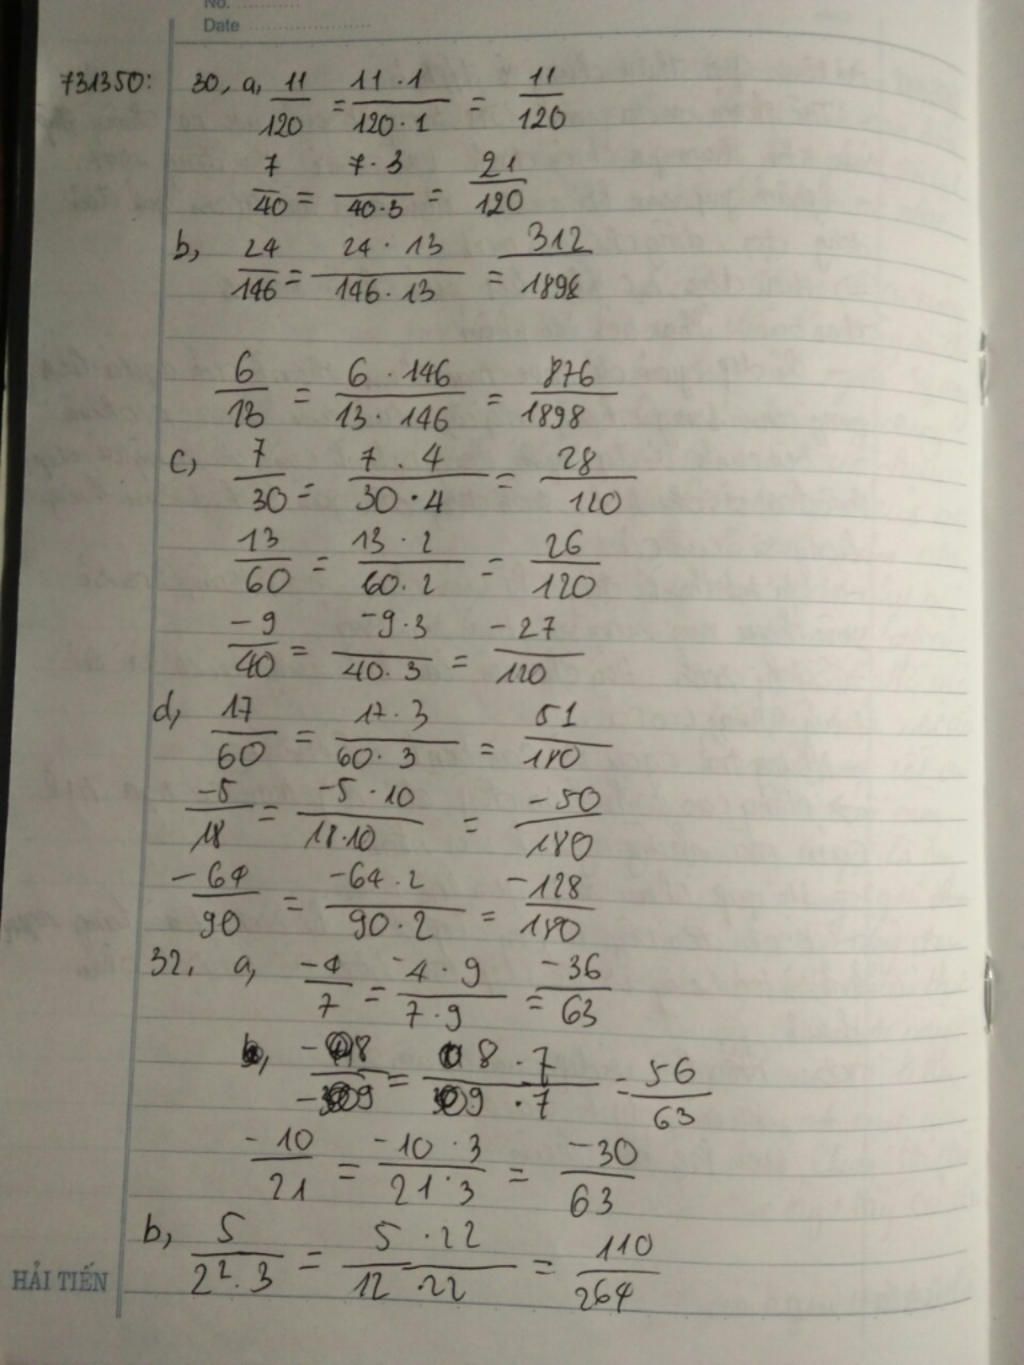 No. ..........
Date .....................
731350: 30, a, 11/120 = 11 · 1/120 · 1 = 11/120
7/40 = 7 · 3/40 · 3 = 21/120
b, 24/146 = 24 · 13/146 · 13 = 312/1898
6/13 = 6 · 146/13 · 146 = 876/1898
c, 7/30 = 7 · 4/30 · 4 = 28/120
13/60 = 13 · 2/60 · 2 = 26/120
-9/40 = -9 · 3/40 · 3 = -27/120
d, 17/60 = 17 · 3/60 · 3 = 51/180
-5/18 = -5 · 10/18 · 10 = -50/180
-64/90 = -64 · 2/90 · 2 = -128/180
32, a, -4/7 = -4 · 9/7 · 9 = -36/63
-8/-9 = 8 · 7/9 · 7 = 56/63
-10/21 = -10 · 3/21 · 3 = -30/63
b, 5/2² · 3 = 5 · 22/12 · 22 = 110/264
HẢI TIẾN